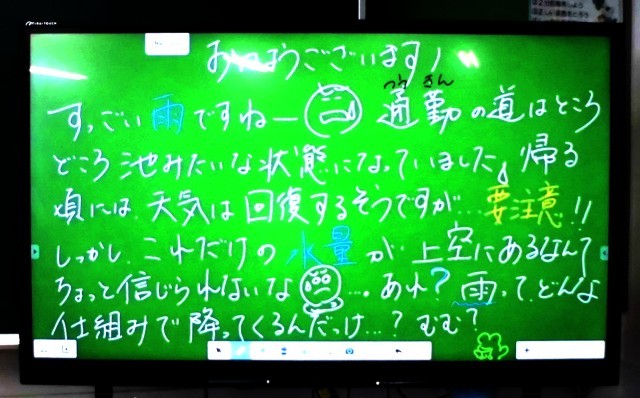 おはようございます!
すっごい雨ですねー 通勤の道はところ
つう きん
どころ池みたいな状態になっていました。帰る
頃には、天気は回復するそうですが…要注意!!
しっかし、これだけの水量が、上空にあるなんて
ちょっと信じられないな…。あれ?雨って、どんな
仕組みで降ってくるんだっけ…?むむ?